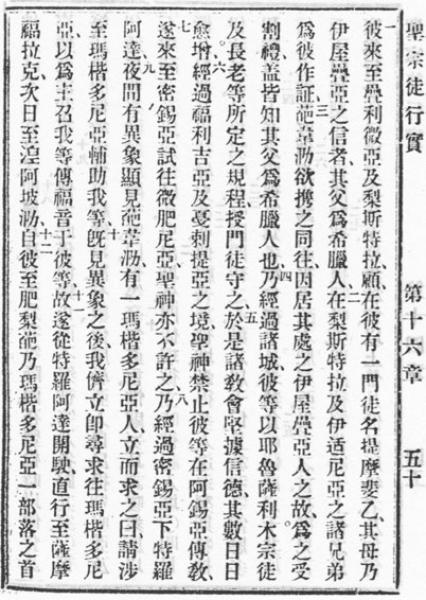 聖宗徒行實 第十六章 五十
一彼來至疊利微亞及梨斯特拉、顧在彼有一門徒名提摩斐乙、其母乃
伊屋疊亞之信者、其父爲希臘人、二在梨斯特拉及伊适尼亞之諸兄弟
爲彼作証、三葩韋泐欲携之同往、因居其處之伊屋疊亞人之故、爲之受
割禮、蓋皆知其父爲希臘人也、四乃經過諸城、彼等以耶魯薩利木宗徒
及長老等所定之規程、授門徒守之、五於是諸敎會堅據信德、其數日日
愈增、六經過福利吉亞及戛剌提亞之境、聖神禁止彼等在阿錫亞傳敎、
七遂來至密錫亞、試往微肥尼亞、聖神亦不許之、八乃經過密錫亞、下特羅
阿達、九夜間有異象顯見葩韋泐、有一瑪楷多尼亞人、立而求之曰、請涉
至瑪楷多尼亞輔助我等、十旣見異象之後、我儕立卽尋求往瑪楷多尼
亞、以爲主召我等傳福音于彼等、十一故遂從特羅阿達開駛、直行至薩摩
福拉克、次日至湼阿坡泐、十二自彼至肥梨葩、乃瑪楷多尼亞一部落之首